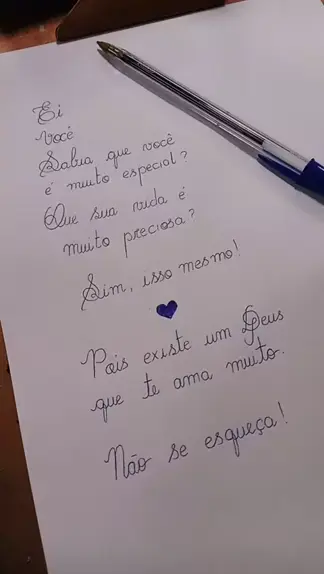 Ei
você
Sabia que você
é muito especial?
Que sua vida é
muito preciosa?
Sim, isso mesmo!
Pois existe um Deus
que te ama muito.
Não se esqueça!